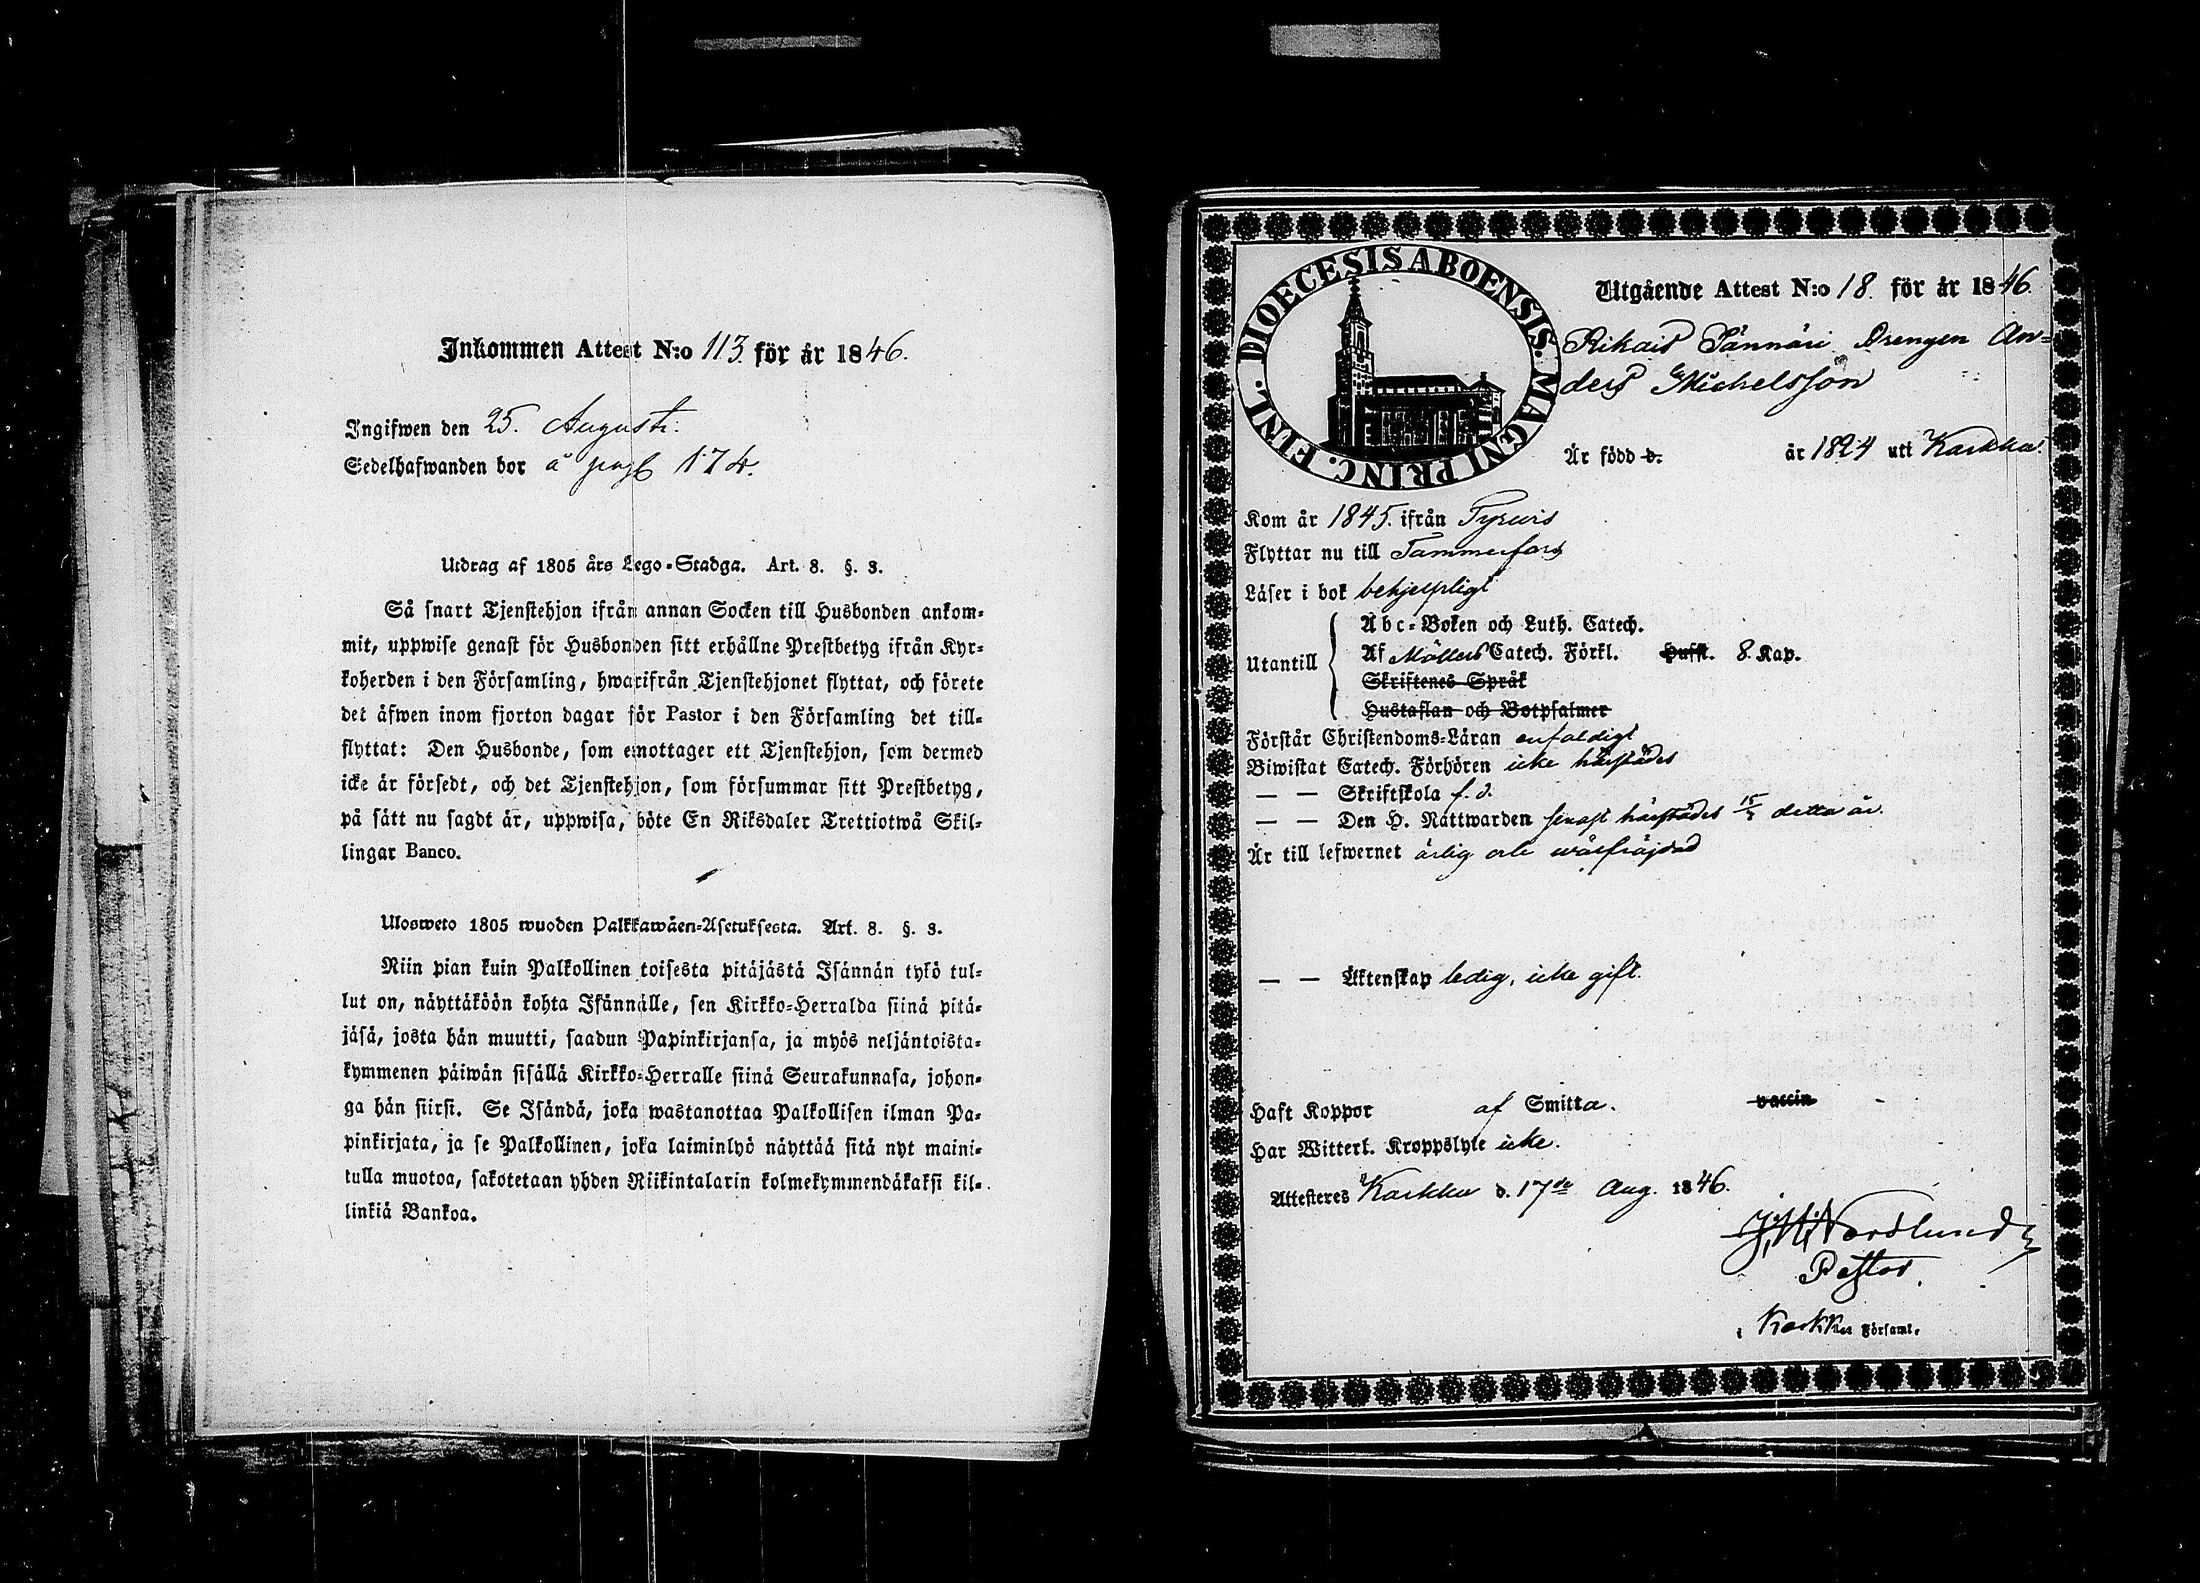 Inkommen Attest N:o 113 för år 1846.
Ingifwen den 25. Augusti.
Sedelhafwanden bor å pag 174.
Utdrag af 1805 års Lego-Stadga. Art. 8. §. 3.
Så snart Tjenstehjon ifrån annan Socken till Husbonden ankom-
mit, uppwise genast för Husbonden sitt erhållne Prestbetyg ifrån Kyr-
koherden i den Församling, hwarifrån Tjenstehjonet flyttat, och förete
det äfwen inom fjorton dagar för Pastor i den Församling det till-
flyttat: Den Husbonde, som emottager ett Tjenstehjon, som dermed
icke är försedt, och det Tjenstehjon, som försummar sitt Prestbetyg,
på sätt nu sagdt är, uppwisa, böte En Riksdaler Trettiotwå Skil-
lingar Banco.
Ulosweto 1805 wuoden Palkkawäen-Asetuksesta. Art. 8. §. 3.
Niin pian kuin Palkollinen toisesta pitäjästä Isännän tykö tul-
lut on, näyttäköön kohta Isännälle, sen Kirkko-Herralda siinä pitä-
jäsä, josta hän muutti, saadun Papinkirjansa, ja myös neljäntoista-
kymmenen päiwän sisällä Kirkko-Herralle siinä Seurakunnasa, johon-
ga hän siirsi. Se Isändä, joka wastanottaa Palkollisen ilman Pa-
pinkirjata, ja se Palkollinen, joka laiminlyö näyttää sitä nyt maini-
tulla muotoa, sakotetaan yhden Riikintalarin kolmekymmendäkaksi kil-
linkiä Bankoa.
DIOECESIS ABOENSIS. MAGNI PRINC. FINL.
Utgående Attest N:o 18. för år 1846.
Rikais Jännäri Drengen An-
ders Michelsson
Är född d. år 1824 uti Karkku.
Kom år 1845. ifrån Tyrwis
Flyttar nu till Tammerfors
Läser i bok behjelpligt
Utantill
Abc-Boken och Luth. Catech.
Af Möllers Catech. Förkl. Hufst. 8. Kap.
Skriftenes Språk
Hustaflan och Botpsalmer
Förstår Christendoms-Läran enfaldigt
Biwistat Catech. Förhören icke härstädes
— — Skriftskola f. d.
— — Den H. Nattwarden senast härstädes detta år.
Är till lefwernet ärlig och wälfräjdad
— — Äktenskap ledig, icke gift.
Haft Koppor af Smitta. vaccin
Har Witterl. Kroppslyte icke.
Attesteres Karkku d. 17de Aug. 1846.
J. H. Nordlund
Pastor.
i Karkku Församl.